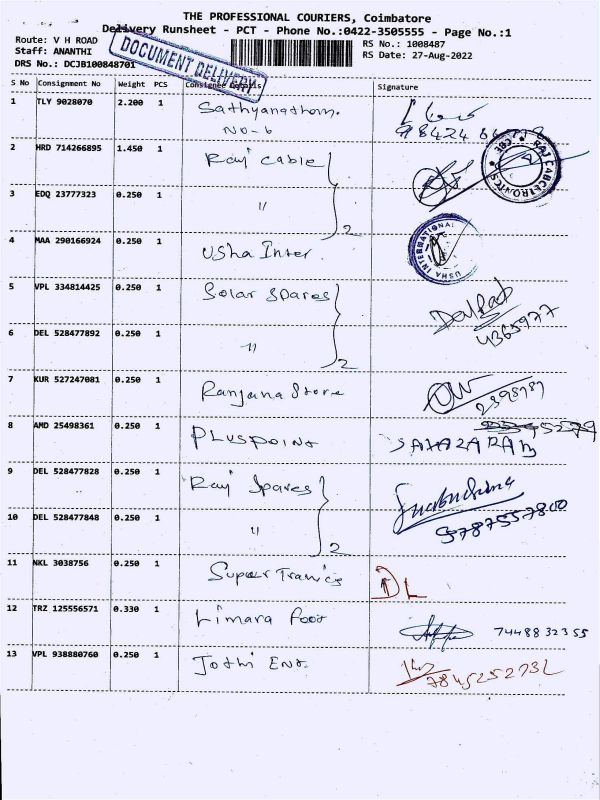 THE PROFESSIONAL COURIERS, Coimbatore
Delivery Runsheet - PCT - Phone No.:0422-3505555 - Page No.:1
Route: V H ROAD
Staff: ANANTHI
DRS No.: DCJB100848701
DOCUMENT DELIVERY
RS No.: 1008487
RS Date: 27-Aug-2022
S No Consignment No Weight PCS Consignee Details Signature
1 TLY 9028070 2.200 1 Sathyanathan.
No-6
2 HRD 714266895 1.450 1 Raj Cable
3 EDQ 23777323 0.250 1 " 2
4 MAA 290166924 0.250 1 Usha Inter. USHA INTERNATIONAL
5 VPL 334814425 0.250 1 Solar Spares
6 DEL 528477892 0.250 1 " 2 4365977
7 KUR 527247081 0.250 1 Ranjana Store
8 AMD 25498361 0.250 1 Pluspoint
9 DEL 528477828 0.250 1 Raj Spares
10 DEL 528477848 0.250 1 " 2 9787557800
11 NKL 3038756 0.250 1 Super DL
12 TRZ 125556571 0.330 1 Limara Foot 7448832355
13 VPL 938880760 0.250 1 Jothi Ent. 7845252732